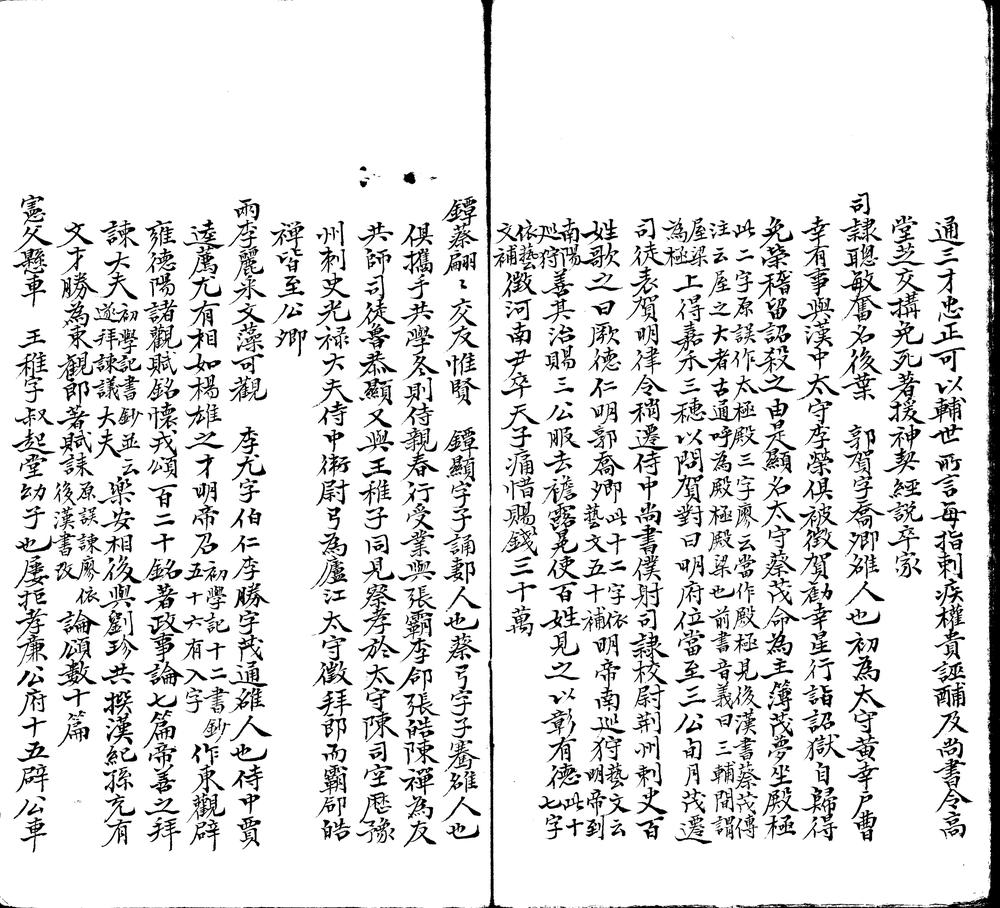 通三才忠正可以輔世所言每指刺疾權貴誣酺及尚書令高
堂芝交搆免死著援神契經說卒家
司隸聰敏奮名後葉　郭賀字喬卿雒人也初為太守黃幸戶曹
幸有事與漢中太守李榮俱被徵賀勸幸星行詣詔獄自歸得
免榮稽留詔殺之由是顯名太守蔡茂命為主簿茂夢坐殿極
此二字原誤作太極殿三字廖云當作殿極見後漢書蔡茂傳
注云屋之大者古通呼為殿極殿梁也前書音義曰三輔間謂
屋梁為極上得嘉禾三穗以問賀對曰明府位當至三公旬月茂遷
司徒表賀明律令稍遷侍中尚書僕射司隸校尉荊州刺史百
姓歌之曰厥德仁明郭喬卿此十二字依藝文五十補明帝南巡狩藝文云明帝到
南陽巡狩善其治賜三公服去襜露冕使百姓見之以彰有德此十七字
依藝文補徵河南尹卒天子痛惜賜錢三十萬
鐔蔡翩〻交友惟賢　鐔顯字子誦郪人也蔡弓字子騫雒人也
俱攜手共學冬則侍親春行受業與張霸李郃張皓陳禪為友
共師司徒魯恭顯又與王稚子同見察孝於太守陳司空歷豫
州刺史光祿大夫侍中衛尉弓為廬江太守徵拜郎而霸郃皓
禪皆至公卿
兩李麗采文藻可觀　李尤字伯仁李勝字茂通雒人也侍中賈
逵薦尤有相如楊雄之才明帝乃初學記十二書鈔五十六有入字作東觀辟
雍德陽諸觀賦銘懷戎頌百二十銘著政事論七篇帝善之拜
諫大夫初學記書鈔並云遂拜諫議大夫樂安相後與劉珍共撰漢紀孫充有
文才勝為東觀郎著賦誄原誤諫廖依後漢書改論頌數十篇
憲父懸車　王稚字叔起堂幼子也屢拒孝廉公府十五辟公車